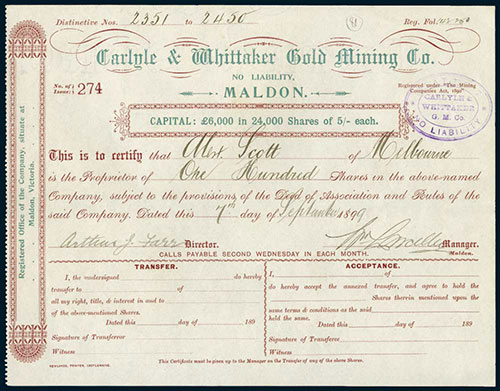 Distinctive Nos. 2351 to 2450
Reg. Fol.
Carlyle & Whittaker Gold Mining Co.
NO LIABILITY,
MALDON.
No. of Issue: 274
Registered under "The Mining Companies Act, 1890"
CARLYLE & WHITTAKER G. M. Co. NO LIABILITY
CAPITAL: £6,000 in 24,000 Shares of 5/- each.
This is to certify that Scott of Melbourne
is the Proprietor of One Hundred Shares in the above-named
Company, subject to the provisions of the Deed of Association and Rules of the
said Company. Dated this 7th day of September 1899
Arthur J. Farr Director. Manager.
(Maldon.)
CALLS PAYABLE SECOND WEDNESDAY IN EACH MONTH.
Registered Office of the Company, situate at
Maldon, Victoria.
TRANSFER.
I, the undersigned do hereby
transfer to of
all my right, title, & interest in and to
of the above-mentioned Shares.
Dated this day of 189
Signature of Transferror
Witness
ACCEPTANCE.
I, of
do hereby accept the annexed transfer, and agree to hold the
Shares therein mentioned upon the
same terms & conditions as the said
held the same.
Dated this day of 189
Signature of Transferee
Witness
NEWLANDS, PRINTER, CASTLEMAINE.
This Certificate must be given up to the Manager on the Transfer of any of the above Shares.